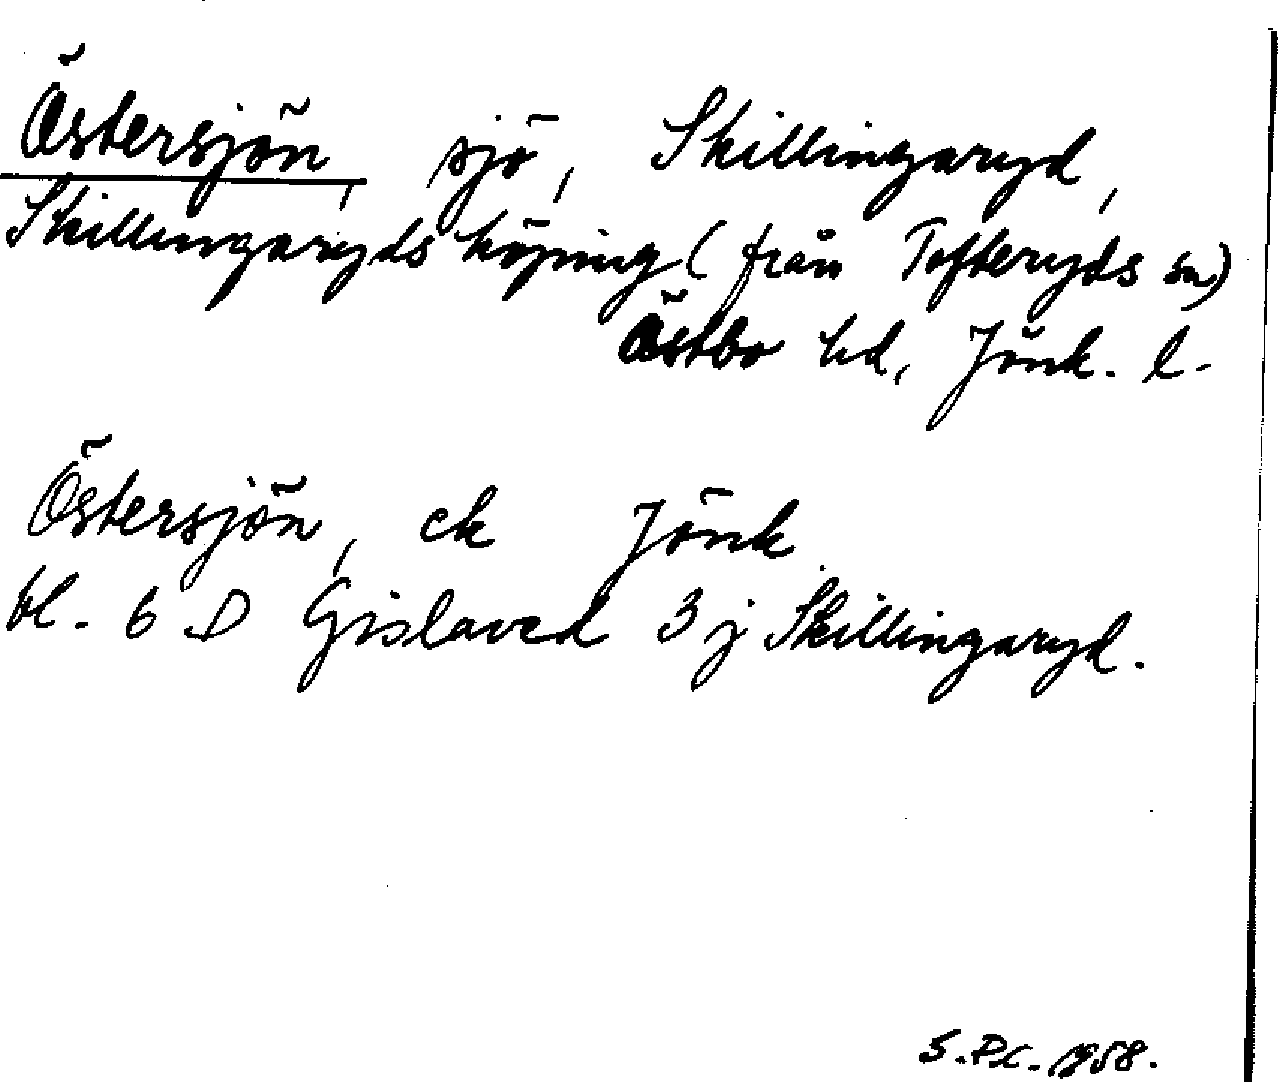 Östersjön, sjö, Skillingaryd,
Skillingaryds köping (från Tofteryds sn)
Östbo hd, Jönk. l.
Östersjön, ek Jönk
bl. 6 D Gislaved 3 j Skillingaryd.
S.P.C. 1958.